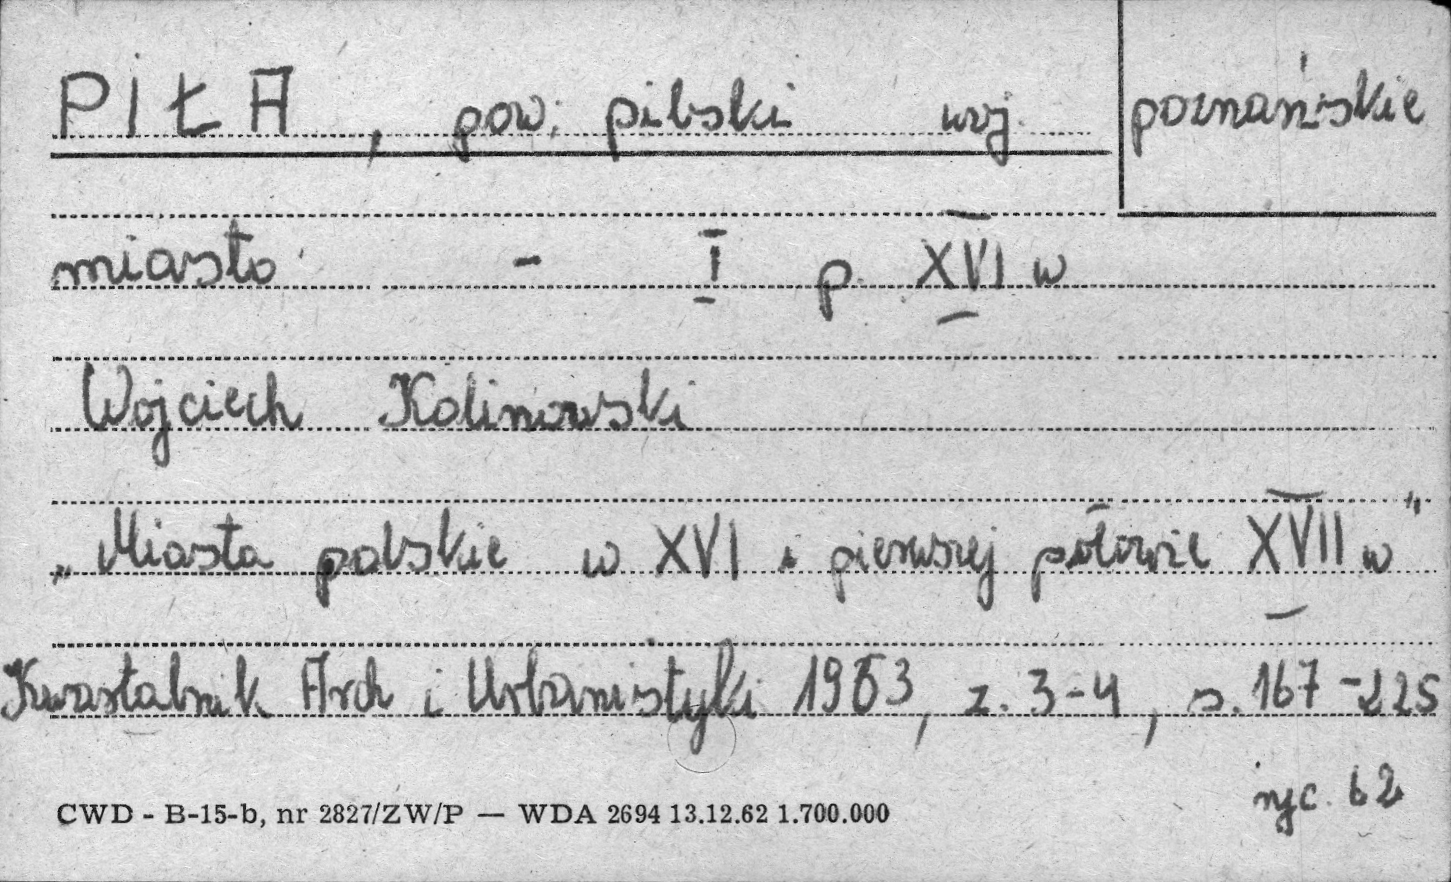 PIŁA, pow. pilski woj. poznańskie
miasto - I p. XVI w
Wojciech Kalinowski
„Miasta polskie w XVI i pierwszej połowie XVII w"
Kwartalnik Arch i Urbanistyki 1963, z. 3-4, s. 167-225
ryc. 62
CWD - B-15-b, nr 2827/ZW/P — WDA 2694 13.12.62 1.700.000